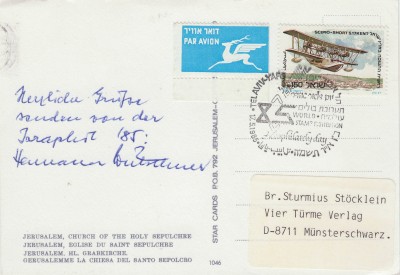 דואר אוויר
PAR AVION
SCION-SHORT S17KENT
ישראל ISRAEL
TEL AVIV-YAFO
WORLD
STAMP EXHIBITION
Herzliche Grüße
senden von der
Israphil '85:
Hermann
STAR CARDS P.O.B. 792 JERUSALEM
Br.Sturmius Stöcklein
Vier Türme Verlag
D-8711 Münsterschwarz.
JERUSALEM, CHURCH OF THE HOLY SEPULCHRE
JERUSALEM, EGLISE DU SAINT SEPULCHRE
JERUSALEM, HL. GRABKIRCHE.
GERUSALEMME LA CHIESA DEL SANTO SEPOLCRO
1046